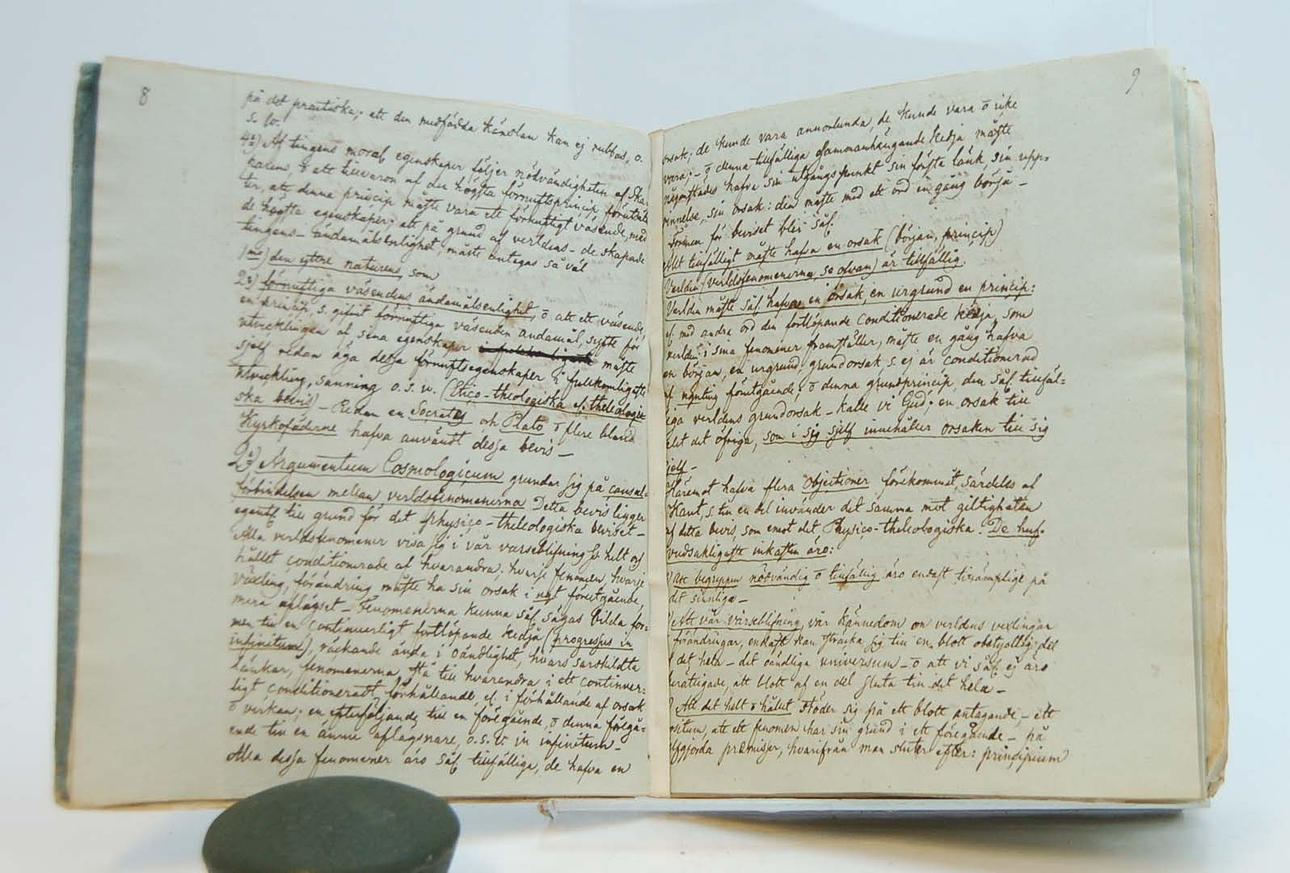 8
på det practiska; att den medfödda känslan kan ej rubbas, o.
s. w.
4:o) At tingens moral egenskaper följer nödvändigheten af Ska-
karen, o att tillvaron af den högsta förnuftsprincip, förutsät-
ter, att denna princip måste vara ett förnuftigt väsende, med
de högsta egenskaper; att på grund af verldens - de skapade
tingens - ändamålsenlighet, måste antagas så väl
1:mo) den yttre naturens, som
2:o) förnuftiga väsendens ändamålsenlighet, o att ett väsende,
en princip, s. gifvit förnuftiga väsenden ändamål, syfte för
utvecklingen af sina egenskaper måste
sjelf redan äga dessa förnuftsegenskaper i fullkomligaste
utveckling, sanning o.s.w. (Etico-theologiska el. theleologi-
ska bevis) - Redan en Socrates och Plato o flere bland
Kyrkofäderne hafva användt dessa bevis -
2:o) Argumentum Cosmologicum grundar sig på causal-
förbindelsen mellan verldsfenomenerna Detta bevis ligger
egentl. till grund för det physico-theleologiska beviset -
Alla verldsfenomener visa sig i vår varseblifning s. helt och
hållet conditionerade af hvarandra; hvarje fenomen hvarje
växling, förändring måste ha sin orsak i ngt föregående,
mera aflägset - Fenomenerna kunna sål. sägas bilda for-
men till en continuerligt fortlöpande kedja (progressus in
infinitum), räckande ända i oändlighet, hvars särskildta
länkar, fenomenerna, stå till hvarandra i ett continuer-
ligt conditioneradt förhållande, el. i förhållande af orsak
o verkan; en efterföljande till en föregående, o denna föregå-
ende till en ännu aflägsnare, o.s.w in infinitum -
Alla dessa fenomener äro sål. tillfälliga, de hafva en
9
orsak; de kunde vara annorlunda, de kunde vara o icke
vara; - o denna tillfälliga sammanhängande kedja måste
någonstädes hafva sin utgångspunkt sin första länk sin upp-
rinnelse, sin orsak: den måste med ett ord en gång börja -
Formen för beviset blir sål.
Allt tillfälligt måste hafva en orsak (början, princip)
Verlden (verldsfenomenerna, se ofvan) är tillfällig.
Verlden måste sål. hafva en orsak, en urgrund en princip:
el. med andra ord den fortlöpande conditionerade kedja, som
verlden i sina fenomener framställer, måste en gång hafva
en början, en urgrund, grundorsak s. ej är conditionerad
af någnting föregående, o denna grundprincip, den sål. tillfäl-
liga verldens grundorsak - kalle vi Gud; en orsak till
allt det öfriga, som i sig sjelf innehåller orsaken till sig
sjelf -
Häremot hafva flera objectioner förekommit, särdeles af
Kant, s. till en del invänder det samma mot giltigheten
af detta bevis, som emot det Physico-theleologiska. De huf-
vudsakligaste inkasten äro:
Att begreppen nödvändig o tillfällig äro endast tillämpligt på
det sinliga -
Att vår varseblifning, vår kännedom om verldens vexlingar
förändringar, endast kan sträcka sig till en blott obetydlig del
af det hela - det oändliga universum - o att vi sål. ej äro
berättigade, att blott af en del sluta till det hela -
Att det helt o hållet stöder sig på ett blott antagande - ett
positum, att ett fenomen har sin grund i ett föregående - på
uppgjorda præmisser, hvarifrån man sluter efter: principium